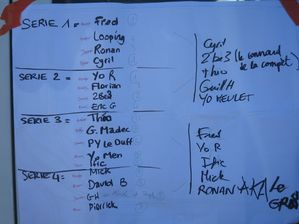 SERIE 1 = Fred
Looping
Ronan
Cyril
SERIE 2 = Yo R
Florian
2Be3
Eric G
SERIE 3 = Théo
G. Madec
PY Le Duff
Yo Men
Eric
SERIE 4 = Mick
David B
GH
Pierrick
Cyril
2be3 (le connard
Théo de la compet)
Guill H
YO KEULET
Fred
Yo R
Mick
RONAN AKA Le
GROS